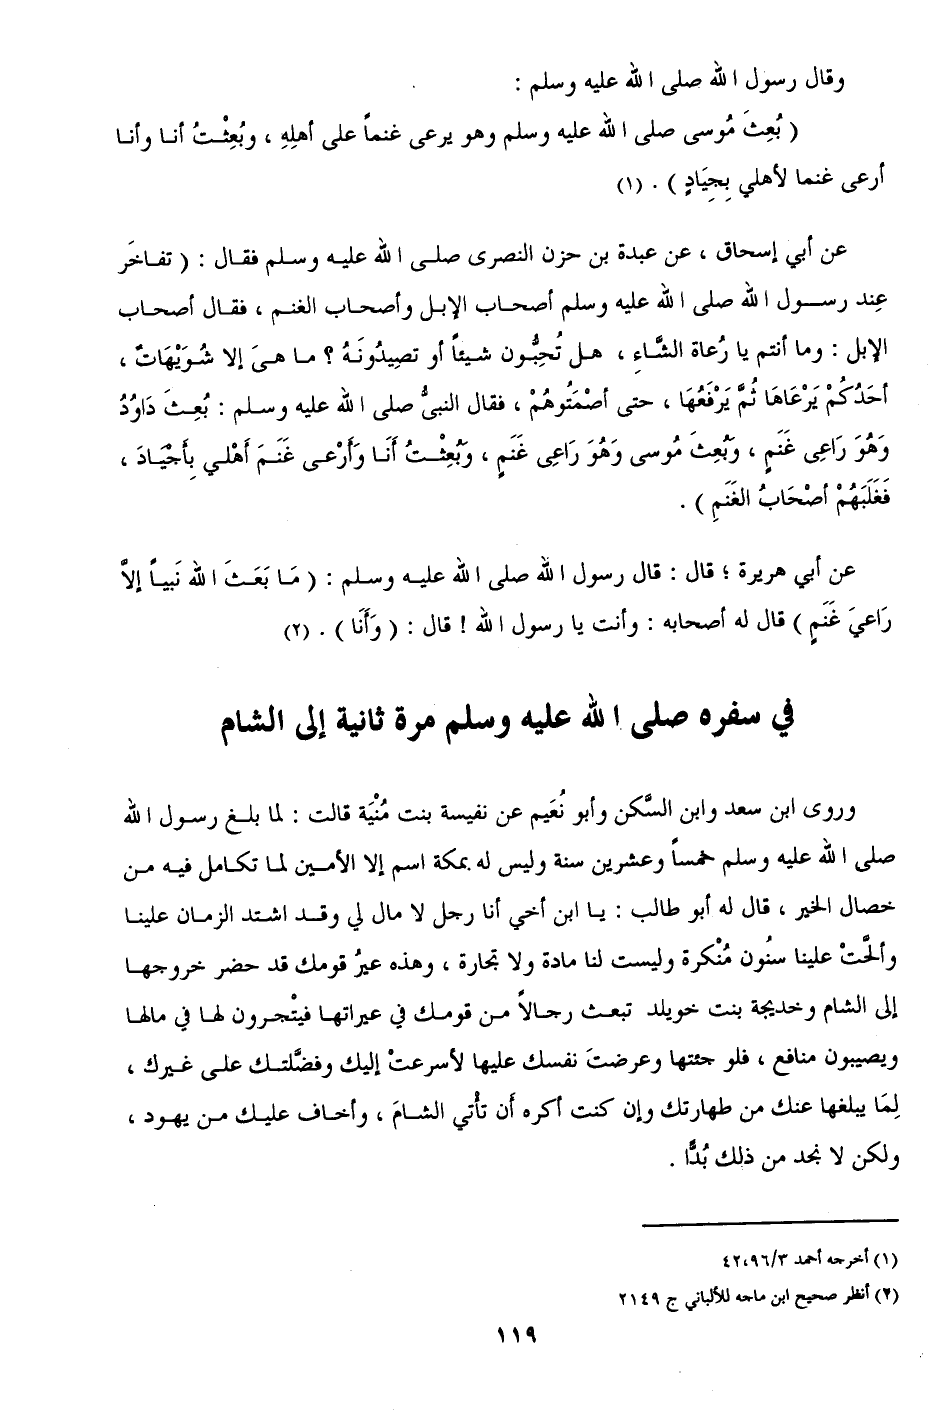 وقال رسول الله صلى الله عليه وسلم :
( بُعِثَ مُوسى صلى الله عليه وسلم وهو يرعى غنماً على أهلِهِ ، وبُعِثْتُ أنا وأنا
أرعى غنما لأهلي بِجِيَادٍ ) . (١)
عن أبي إسحاق ، عن عبدة بن حزن النصرى صلى الله عليه وسلم فقال : ( تفاخَر
عِند رسول الله صلى الله عليه وسلم أصحاب الإبل وأصحاب الغنم ، فقال أصحاب
الإبل : وما أنتم يا رُعاة الشَّاءِ ، هل تُحِبُّون شيئاً أو تصِيدُونَهُ ؟ ما هىَ إلا شُوَيْهَاتٌ ،
أحَدُكُمْ يَرْعَاهَا ثُمَّ يَرْفَعُهَا ، حتى أصْمَتُوهُمْ ، فقال النبىُّ صلى الله عليه وسلم : بُعِثَ دَاوُدُ
وَهُوَ رَاعِى غَنَمٍ ، وَبُعِثَ مُوسى وَهُوَ رَاعِى غَنَمٍ ، وَبُعِثْتُ أنَا وَأَرْعى غَنَمَ أهْلي بِأجْيَادَ ،
فَغَلَبَهُمْ أصْحَابُ الغَنَمِ ) .
عن أبي هريرة ؛ قال : قال رسول الله صلى الله عليه وسلم : ( مَا بَعَثَ الله نَبياً إلاَّ
رَاعيَ غَنَمٍ ) قال له أصحابه : وأنت يا رسول الله ! قال : ( وَأَنَا ) . (٢)
في سفره صلى الله عليه وسلم مرة ثانية إلى الشام
وروى ابن سعد وابن السَّكن وأبو نُعَيم عن نفيسة بنت مُنْيَة قالت : لما بلغ رسول الله
صلى الله عليه وسلم خمساً وعشرين سنة وليس له بمكة اسم إلا الأمين لما تكامل فيه من
خصال الخير ، قال له أبو طالب : يا ابن أخي أنا رجل لا مال لي وقد اشتد الزمان علينا
وألحَّتْ علينا سنُون مُنْكرة وليست لنا مادة ولا تجارة ، وهذه عيرُ قومك قد حضر خروجها
إلى الشام وخديجة بنت خويلد تبعث رجالاً من قومك في عيراتها فيتْجرون لها في مالها
ويصيبون منافع ، فلو جئتها وعرضتَ نفسك عليها لأسرعتْ إليك وفضَّلتك على غيرك ،
لِمَا يبلغها عنك من طهارتك وإن كنت أكره أن تأتي الشامَ ، وأخاف عليك من يهود ،
ولكن لا نجد من ذلك بُدًّا .
(١) أخرجه أحمد ٤٢،٩٦/٣
(٢) أنظر صحيح ابن ماجه للألباني ج ٢١٤٩
١١٩